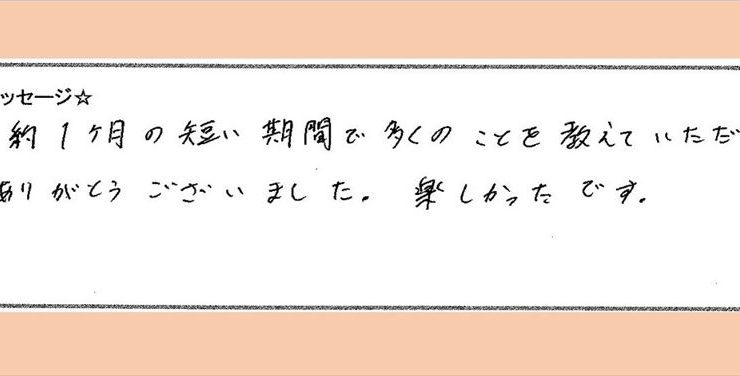 ッセージ☆
約1ヶ月の短い期間で多くのことを教えていただ
ありがとうございました。楽しかったです。